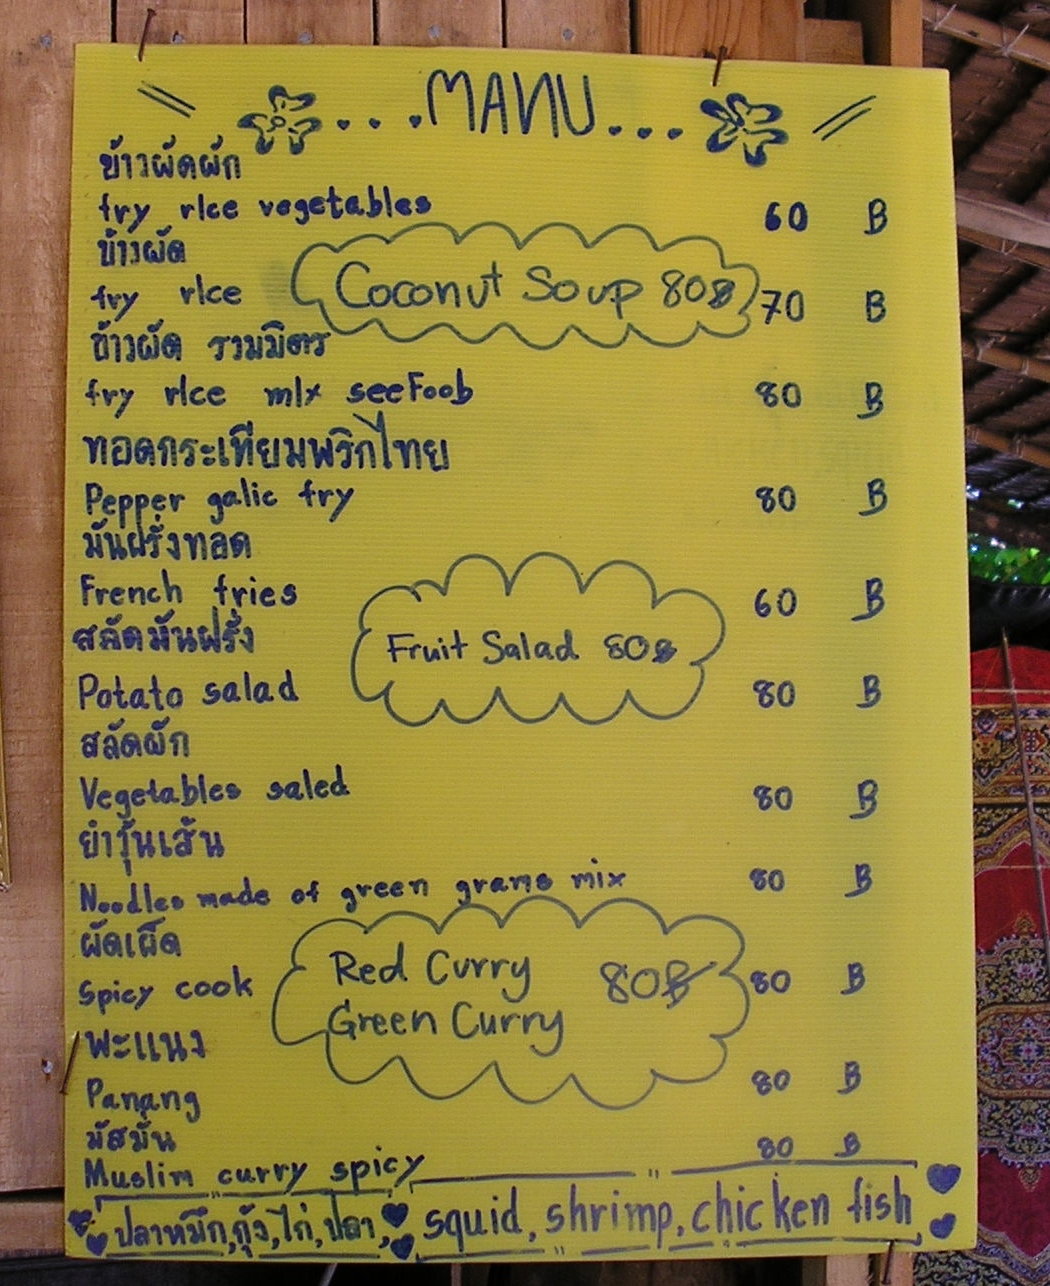 ...MANU...
ข้าวผัดผัก
fry rice vegetables 60 B
ข้าวผัด
fry rice 70 B
Coconut Soup 80B
ข้าวผัด รวมมิตร
fry rice mix seeFoob 80 B
ทอดกระเทียมพริกไทย
Pepper galic fry 80 B
มันฝรั่งทอด
French fries 60 B
สลัดมันฝรั่ง
Fruit Salad 80B
Potato salad 80 B
สลัดผัก
Vegetables saled 80 B
ยำวุ้นเส้น
Noodles made of green grams mix 80 B
ผัดเผ็ด
Spicy cook 80 B
Red Curry 80B
Green Curry
พะแนง
Panang 80 B
มัสมั่น
Muslim curry spicy 80 B
ปลาหมึก,กุ้ง,ไก่,ปลา, squid, shrimp, chicken fish